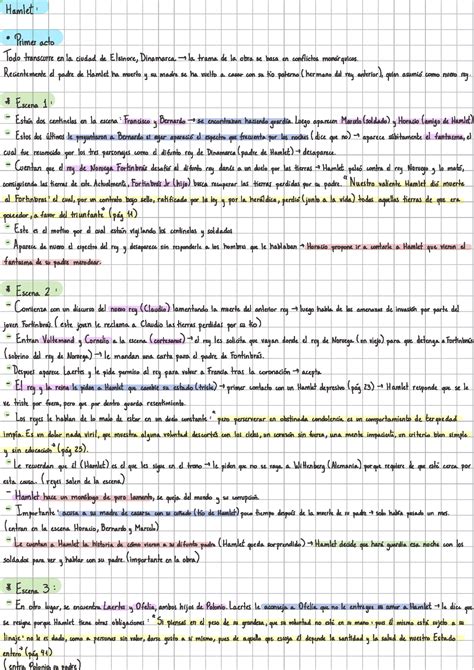 Hamlet:
• Primer acto
Todo transcurre en la ciudad de Elsinore, Dinamarca. → la trama de la obra se basa en conflictos monárquicos.
Recientemente el padre de Hamlet ha muerto y su madre se ha vuelto a casar con su tío paterno (hermano del rey anterior), quien asumió como nuevo rey.
* Escena 1:
- Están dos centinelas en la escena: Francisco y Bernardo → se encontraban haciendo guardia. Luego aparecen Marcelo (soldado) y Horacio (amigo de Hamlet)
- Estos dos últimos le preguntaron a Bernardo si ayer apareció el espectro que frecuenta por las noches (dice que no) → aparece súbitamente el fantasma, el
cual fue reconocido por los tres personajes como el difunto rey de Dinamarca (padre de Hamlet) → desaparece.
- Cuentan que el rey de Noruega Fortinbrás desafío al difunto rey danés a un duelo por las tierras → Hamlet peleó contra el rey Noruego y lo mató,
consiguiendo las tierras de otr. Actualmente, Fortinbrás Jr (hijo) busca recuperar las tierras perdidas por su padre. "Nuestro valiente Hamlet dió muerte
al Fortinbras: el cual, por un contrato bajo sello, ratificado por la ley y por la heráldica, perdió (junto a la vida) todas aquellas tierras de que era
poseedor, a favor del triunfante" (pág 11)
- Este es el motivo por el cual están vigilando los centinelas y soldados
- Aparece de nuevo el espectro del rey y desaparece sin responderle a los hombres que le hablaban → Horacio propone ir a contarle a Hamlet que vieron el
fantasma de su padre merodear.
* Escena 2:
- Comienza con un discurso del nuevo rey (Claudio) lamentando la muerte del anterior rey → luego habla de las amenazas de invasión por parte del
joven Fortinbrás. (este joven le reclama a Claudio las tierras perdidas por su tío)
- Entran Voltemand y Cornelio a la escena (cortesanos) → el rey les solicita que vayan donde el rey de Noruega (un viejo) para que detenga a Fortinbrás
(sobrino del rey de Noruega) → le mandan una carta para el padre de Fortinbrás.
- Despues aparece Laertes y le pide permiso al rey para volver a Francia tras la coronación → acepta.
- El rey y la reina le piden a Hamlet que cambie su estado (triste) → primer contacto con un Hamlet depresivo (pág 23) → Hamlet responde que se le
ve triste por fuera, pero que por dentro guarda resentimiento.
- Los reyes le hablan de lo malo de estar en un duelo constante. "pero perserverar en obstinada condolencia, es un comportamiento de terquedad
impía. Es un dolor nada viril, que muestra alguna voluntad descortés con los cielos, un corazón sin fuerza, una mente impaciente, un criterio bien simple
y sin educación" (pág 25).
- Le recuerdan que él (Hamlet) es el que les sigue en el trono → le piden que no se vaya a Wittenberg (Alemania) porque requiere de que esté cerca por
esta causa. (reyes salen de la escena)
- Hamlet hace un monólogo de puro lamento, se queja del mundo y su corrupción
- Importante: acusa a su madre de casarse con su cuñado (tío de Hamlet) poco tiempo después de la muerte de su padre → solo había pasado un mes.
(entran en la escena Horacio, Bernardo y Marcelo)
- Le cuentan a Hamlet la historia de cómo vieron a su difunto padre (Hamlet queda sorprendido) → Hamlet decide que hará guardia esa noche con los
soldados para ver y hablar con su padre. (importante en la obra)
* Escena 3:
- En otro lugar, se encuentra Laertes y Ofelia, ambos hijos de Polonio. Laertes le aconseja a Ofelia que no le entregue su amor a Hamlet → le dice que
se resigne porque Hamlet tiene otras obligaciones: "Si piensas en el peso de su grandeza, que su voluntad no está en su mano: pues él mismo está sujeto a su
linaje: no le es dado, como a personas sin valor, darse gusto a sí mismo, pues de aquello que escoja él depende la santidad y la salud de nuestro Estado
entero" (pág 41)
(entra Polonio su padre)